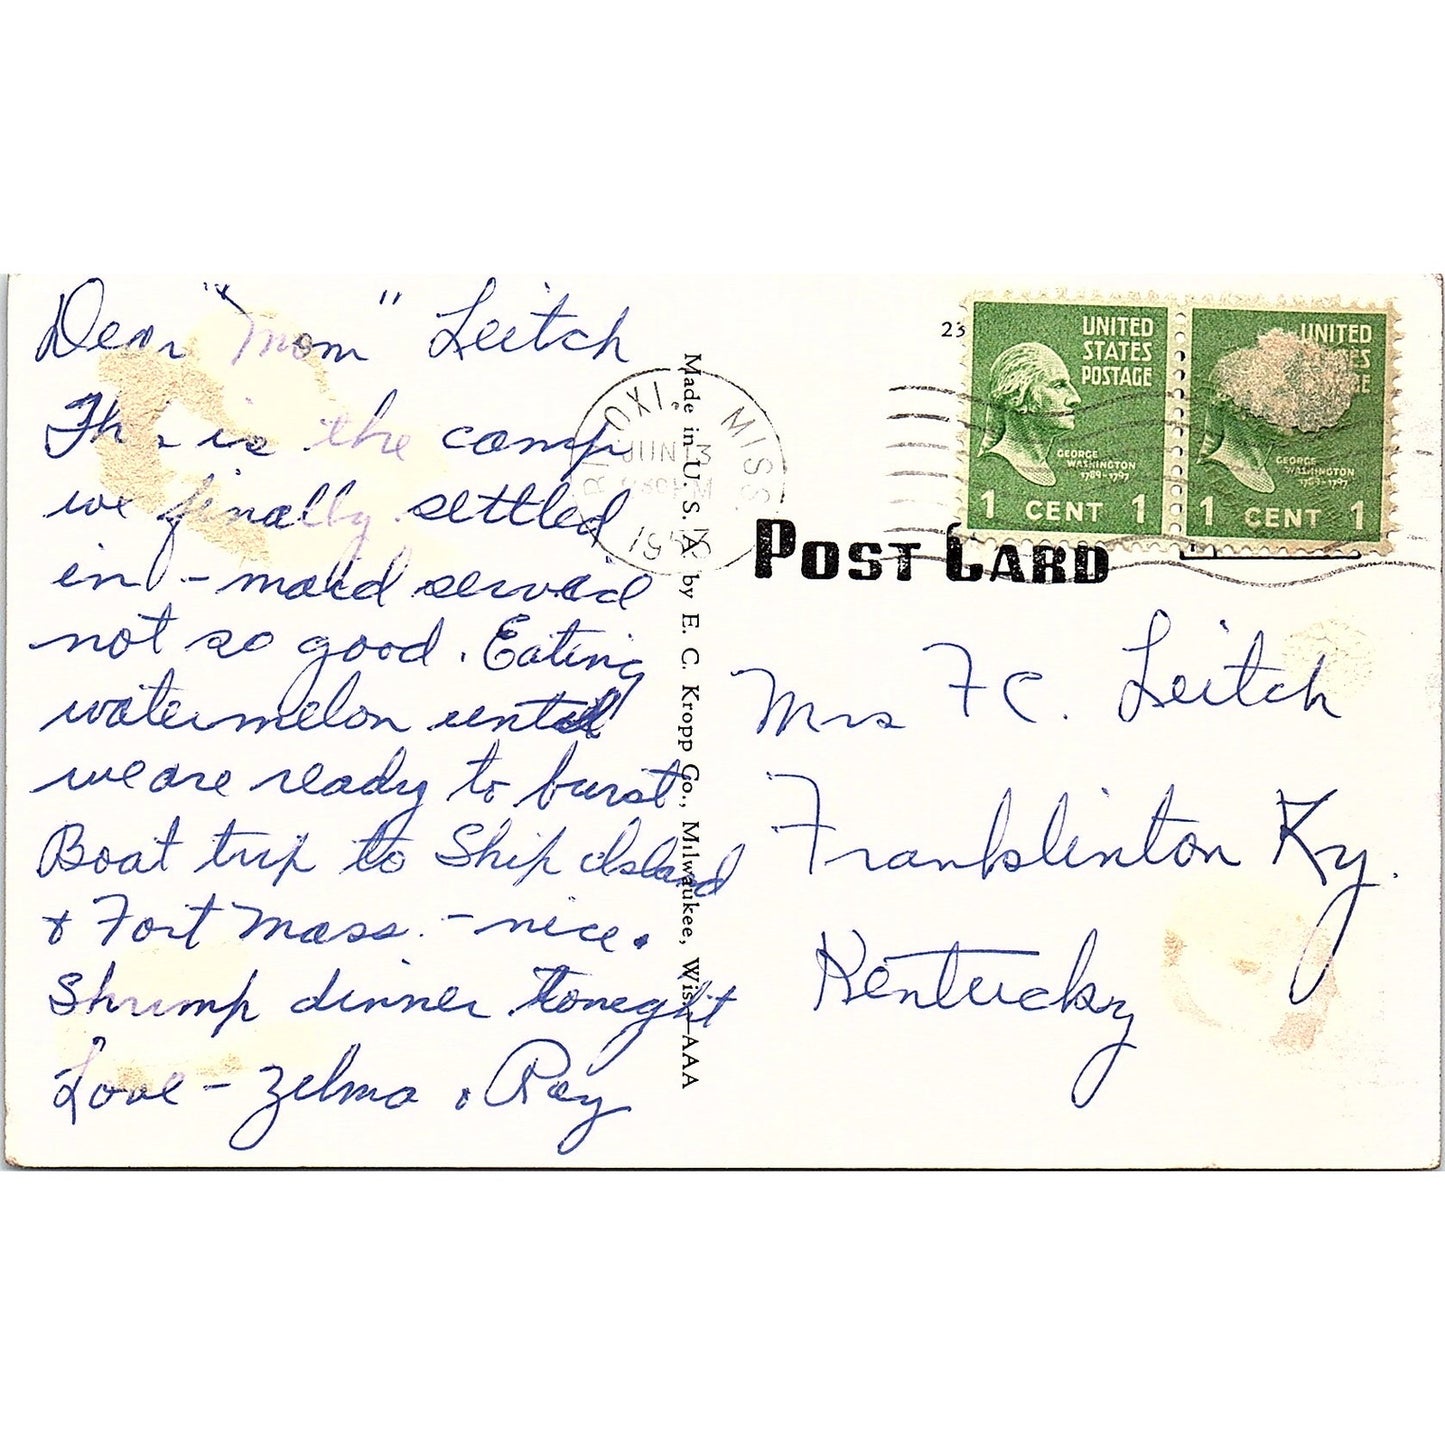 Dear "Mom" Leitch
This is the camp
we finally settled
in - maid service
not so good. Eating
watermelon until
we are ready to burst
Boat trip to Ship Island
& Fort Mass. - nice.
Shrimp dinner tonight
Love - Zelma & Ray
Made in U. S. A. by E. C. Kropp Co., Milwaukee, Wis.—AAA
BILOXI, MISS.
JUN 13
PM
23
UNITED
STATES
POSTAGE
GEORGE
WASHINGTON
1789-1797
1 CENT 1
UNITED
STATES
POSTAGE
GEORGE
WASHINGTON
1789-1797
1 CENT 1
POST CARD
Mrs F C. Leitch
Franklinton Ky.
Kentucky